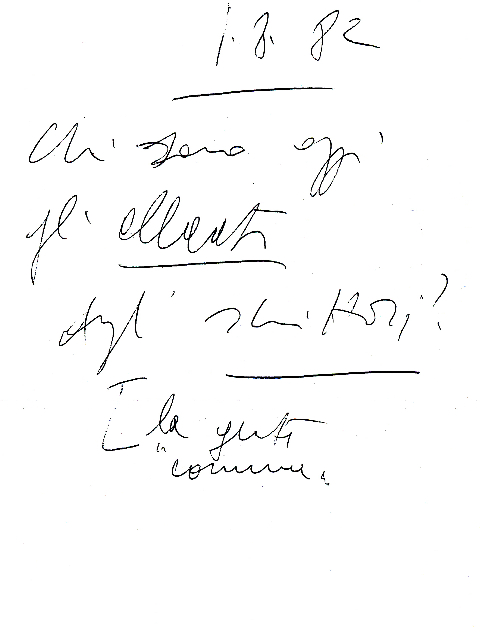 1.8.82
Chi sono oggi
gli alleati
degli scrittori?
[ la gente
"comune"